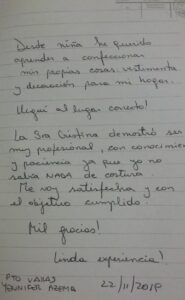 Desde niña he querido
aprender a confeccionar
mis propias cosas, vestimenta
y decoración para mi hogar.
Llegué al lugar correcto!
La Sra Cristina demostró ser
muy profesional, con conocimiento
y paciencia ya que yo
sabía NADA de costura
Me voy satisfecha y con
el objetivo cumplido.
Mil gracias!
Linda experiencia!
PTO VARAS 22/11/2018
JENNIFER